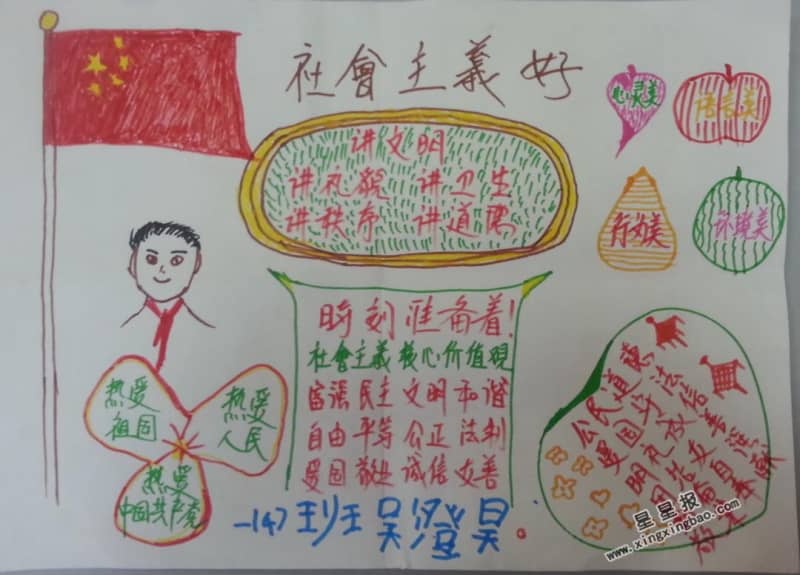 社會主義好
讲文明
讲礼貌 讲卫生
讲秩序 讲道德
心灵美
语言美
行为美
环境美
时刻准备着!
社會主義核心价值观
富强民主文明和谐
自由平等公正法制
爱国敬业诚信友善
热爱
祖国
热爱
人民
热爱
中国共产党
公民道德
爱国守法
明礼诚信
团结友善
一(4)班 吴澄昊
星星报
www.xingxingbao.com